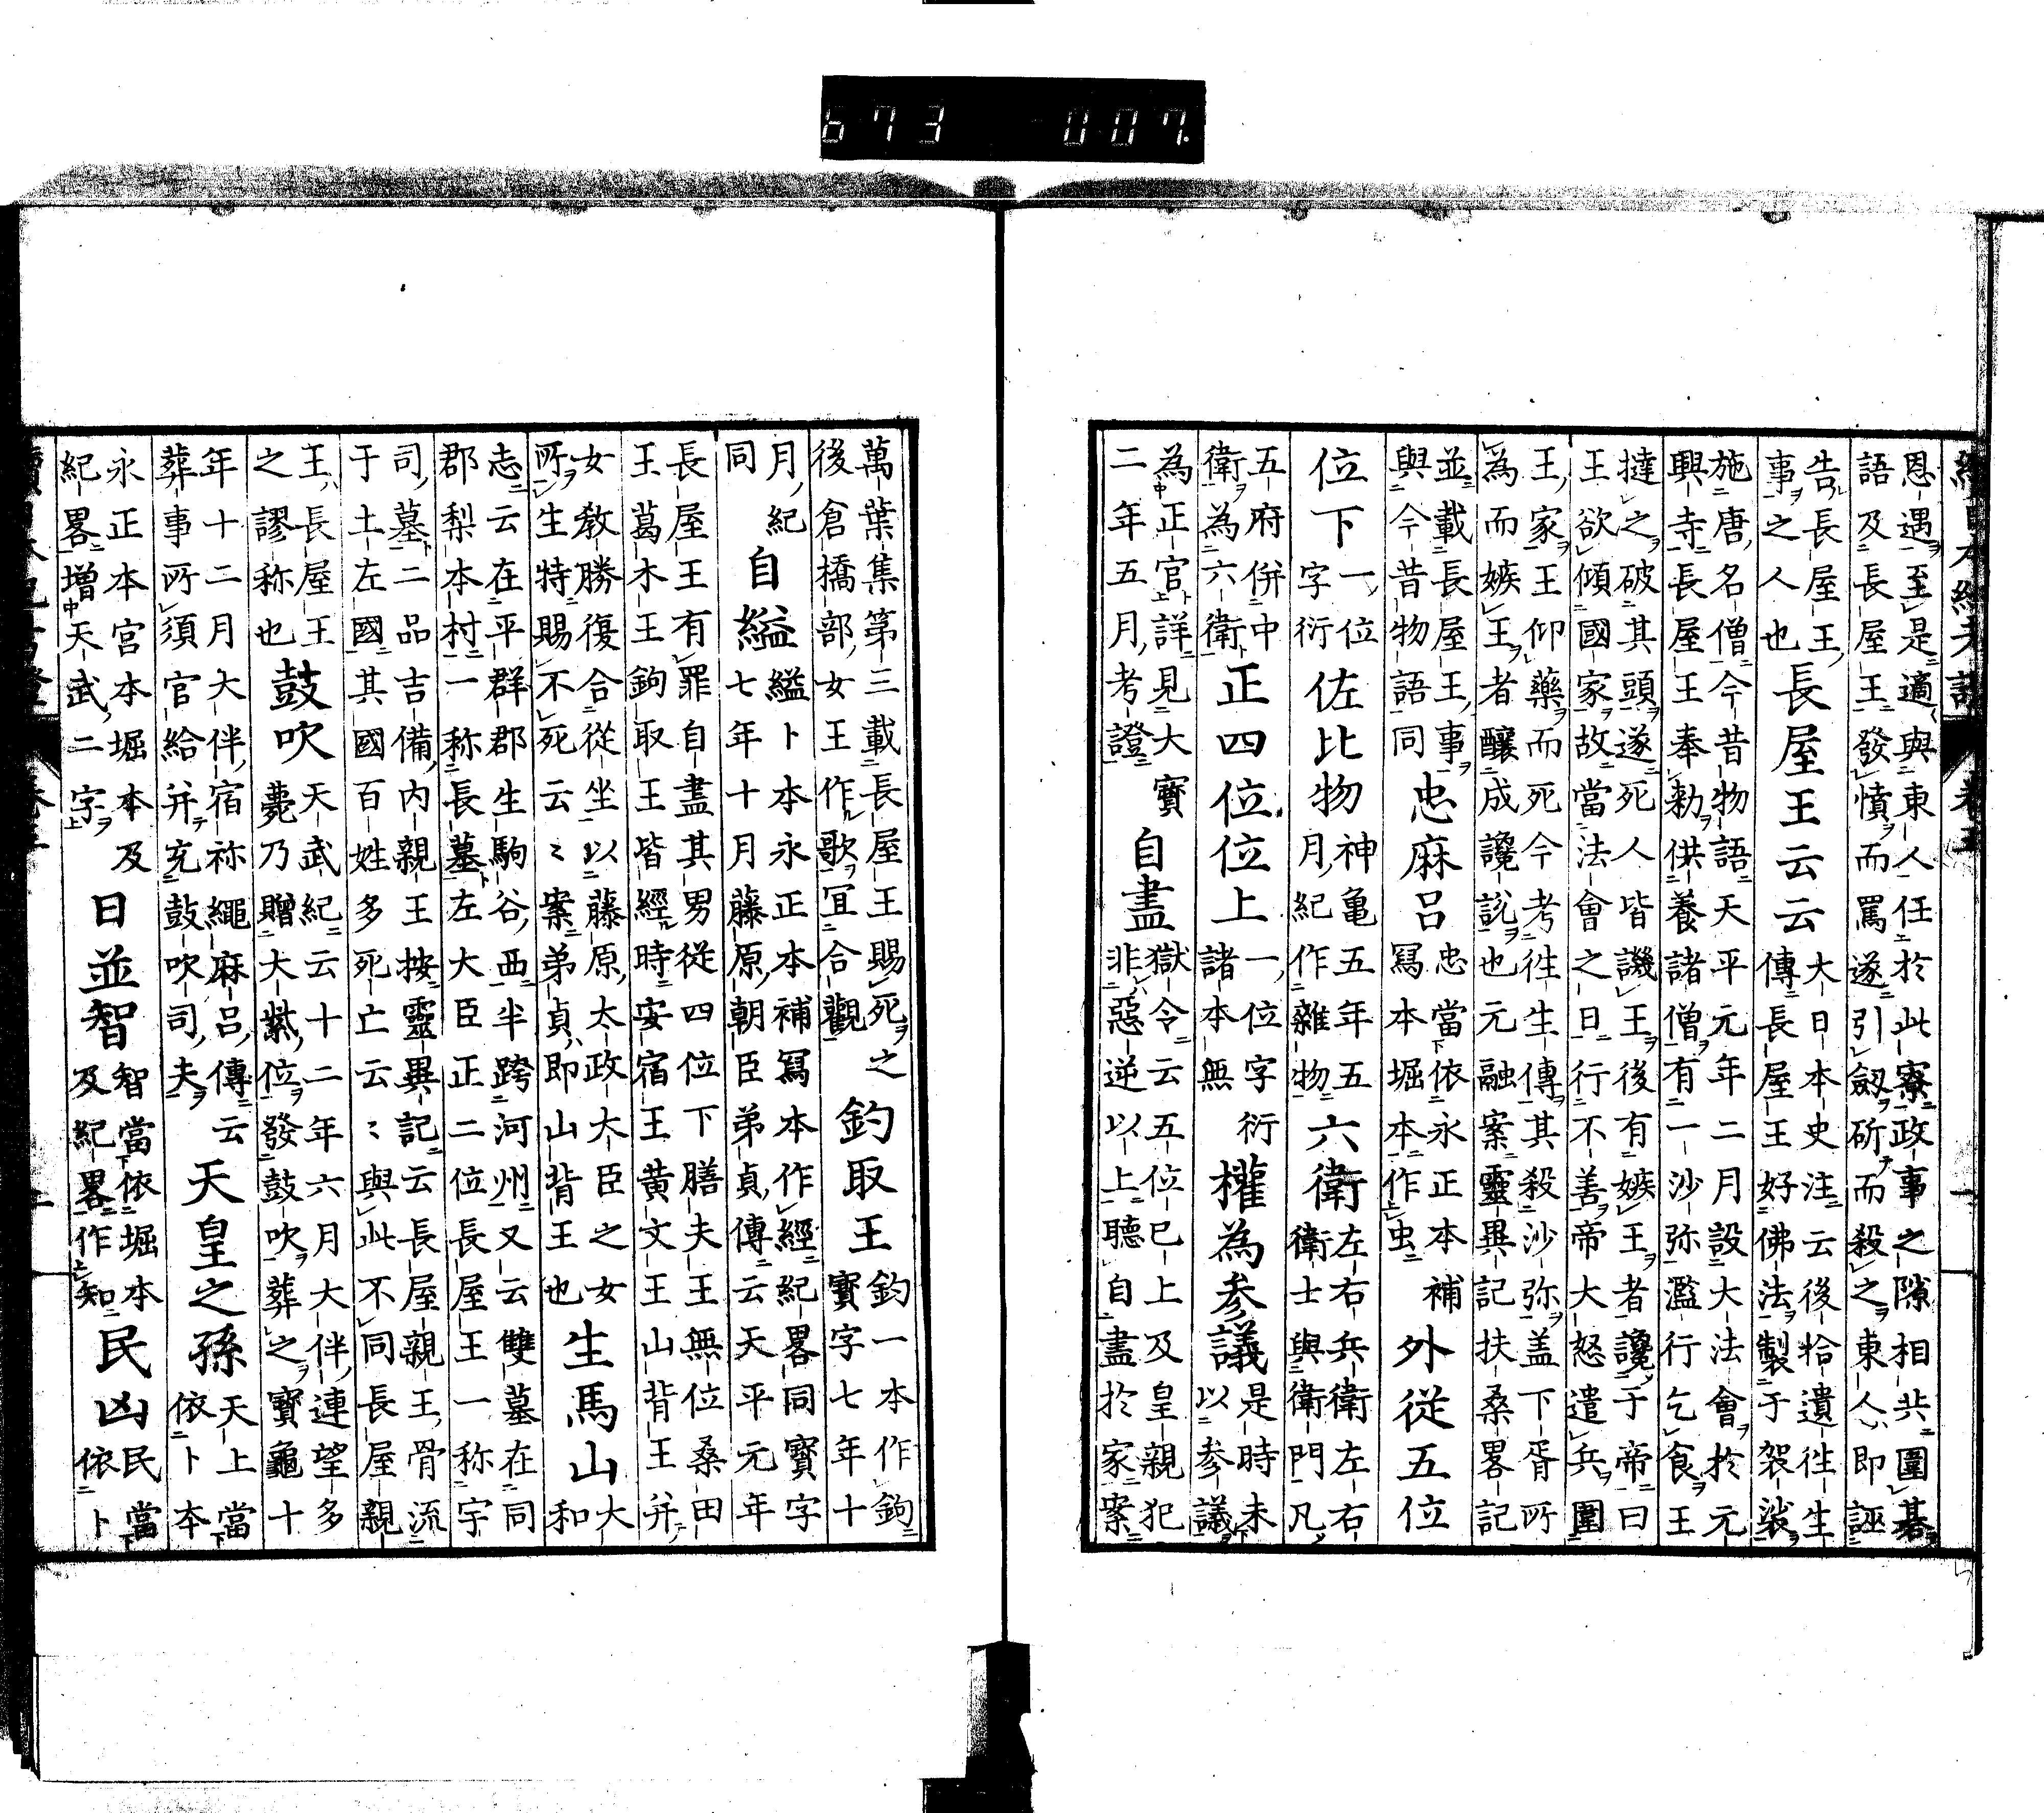 恩遇至是適與東人任於此寮政事之隙相共圍碁
語及長屋王發憤而罵遂引劒斫而殺之東人即誣
告長屋王
事之人也
長屋王云云
大日本史注云後拾遺往生
傳長屋王好佛法製于袈裟
施唐名僧今昔物語天平元年二月設大法會於元
興寺長屋王奉勅供養諸僧有一沙弥濫行乞食王
撻之破其頭遂死人皆譏王後有嫉王者讒于帝曰
王欲傾國家故當法會之日行不善帝大怒遣兵圍
王家王仰藥而死今考往生傳其殺沙弥盖下胥所
為而嫉王者釀成讒説也元融案靈異記扶桑畧記
並載長屋王事
與今昔物語同
忠麻呂
忠當依永正本補
冩本堀本作虫
外從五位
位下
一位
字衍
佐比物
神亀五年五
月紀作雜物
六衛
左右兵衛左右
衛士與衛門凡
五府併中
衛為六衛
正四位位上
一位字衍
諸本無
權為参議
是時未
以参議
為正官詳見大寳
二年五月考證
自盡
獄令云五位已上及皇親犯
非惡逆以上聽自盡於家案
萬葉集第三載長屋王賜死之
後倉橋部女王作歌宜合觀
釣取王
釣一本作鉤
寳字七年十
月紀
同
自縊
縊卜本永正本補冩本作經紀畧同寳字
七年十月藤原朝臣弟貞傳云天平元年
長屋王有罪自盡其男從四位下膳夫王無位桑田
王葛木王鉤取王皆經時安宿王黄文王山背王并
女教勝復合從坐以藤原太政大臣之女
所生特賜不死云〻案弟貞即山背王也
生馬山
大
和
志云在平群郡生駒谷西半跨河州又云雙墓在同
郡梨本村一称長墓左大臣正二位長屋王一称宇
司墓二品吉備内親王按靈異記云長屋親王骨流
于土左國其國百姓多死亡云〻與此不同長屋親
王長屋王
之謬称也
鼓吹
天武紀云十二年六月大伴連望多
薨乃贈大紫位發鼓吹葬之寳龜十
年十二月大伴宿祢繩麻呂傳云
葬事所須官給并充鼓吹司夫
天皇之孫
天上當
依卜本
永正本宮本堀本及
紀畧増天武二字
日並智
智當依堀本
及紀畧作知
民凶
民當
依卜